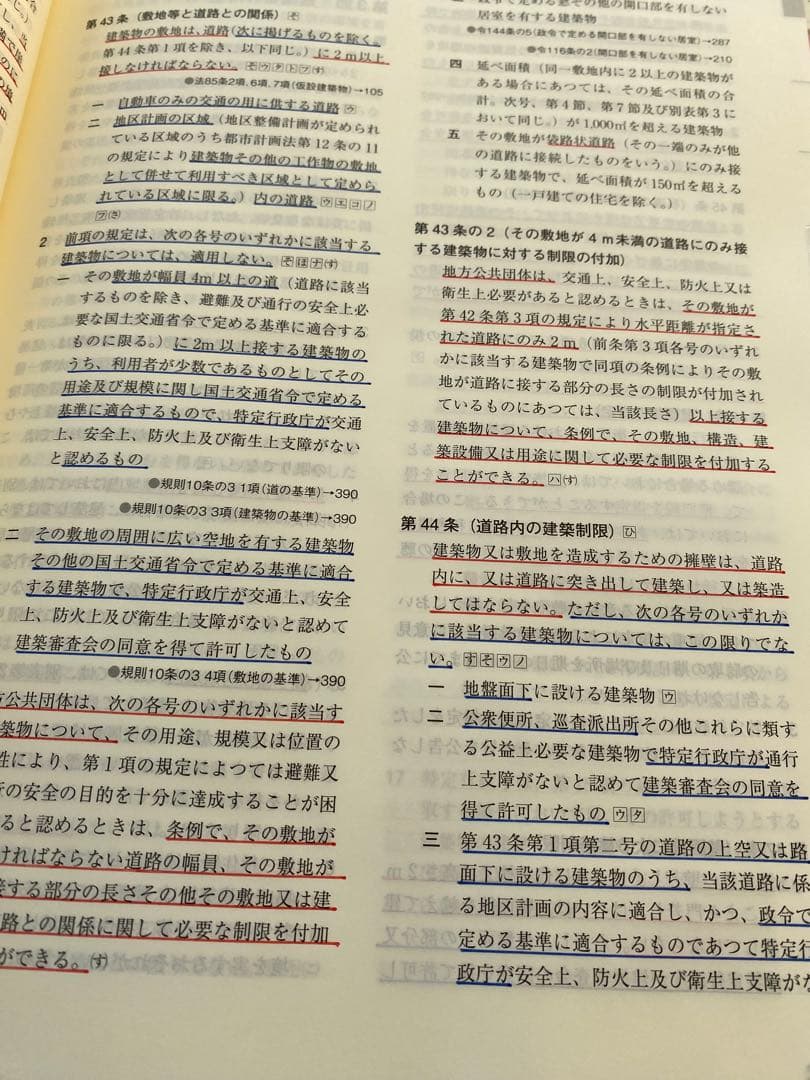 第43条（敷地等と道路との関係）そ
建築物の敷地は、道路（次に掲げるものを除く。
第44条第1項を除き、以下同じ。）に2m以上
接しなければならない。そウタトフす
●法85条2項、6項、7項（仮設建築物）→105
一 自動車のみの交通の用に供する道路ウ
二 地区計画の区域（地区整備計画が定められ
ている区域のうち都市計画法第12条の11
の規定により建築物その他の工作物の敷地
として併せて利用すべき区域として定めら
れている区域に限る。）内の道路ウエコノ
フさ
2 前項の規定は、次の各号のいずれかに該当する
建築物については、適用しない。そほナす
一 その敷地が幅員4m以上の道（道路に該当
するものを除き、避難及び通行の安全上必
要な国土交通省令で定める基準に適合する
ものに限る。）に2m以上接する建築物の
うち、利用者が少数であるものとしてその
用途及び規模に関し国土交通省令で定める
基準に適合するもので、特定行政庁が交通
上、安全上、防火上及び衛生上支障がない
と認めるもの
●規則10条の3 1項（道の基準）→390
●規則10条の3 3項（建築物の基準）→390
二 その敷地の周囲に広い空地を有する建築物
その他の国土交通省令で定める基準に適合
する建築物で、特定行政庁が交通上、安全
上、防火上及び衛生上支障がないと認めて
建築審査会の同意を得て許可したもの
●規則10条の3 4項（敷地の基準）→390
方公共団体は、次の各号のいずれかに該当す
築物について、その用途、規模又は位置の
性により、第1項の規定によつては避難又
行の安全の目的を十分に達成することが困
ると認めるときは、条例で、その敷地が
ければならない道路の幅員、その敷地が
接する部分の長さその他その敷地又は建
路との関係に関して必要な制限を付加
ができる。す
三 政令で定める窓その他の開口部を有しない
居室を有する建築物
●令144条の5（政令で定める開口部を有しない居室）→287
●令116条の2（開口部を有しない居室）→210
四 延べ面積（同一敷地内に2以上の建築物が
ある場合にあつては、その延べ面積の合
計。次号、第4節、第7節及び別表第3に
おいて同じ。）が1,000㎡を超える建築物
五 その敷地が袋路状道路（その一端のみが他
の道路に接続したものをいう。）にのみ接
する建築物で、延べ面積が150㎡を超える
もの（一戸建ての住宅を除く。）
第43条の2（その敷地が4m未満の道路にのみ接
する建築物に対する制限の付加）
地方公共団体は、交通上、安全上、防火上又は
衛生上必要があると認めるときは、その敷地が
第42条第3項の規定により水平距離が指定さ
れた道路にのみ2m（前条第3項各号のいずれ
かに該当する建築物で同項の条例によりその敷
地が道路に接する部分の長さの制限が付加され
ているものにあつては、当該長さ）以上接する
建築物について、条例で、その敷地、構造、建
築設備又は用途に関して必要な制限を付加する
ことができる。ハす
第44条（道路内の建築制限）ひ
建築物又は敷地を造成するための擁壁は、道路
内に、又は道路に突き出して建築し、又は築造
してはならない。ただし、次の各号のいずれか
に該当する建築物については、この限りでな
い。すそウノ
一 地盤面下に設ける建築物ウ
二 公衆便所、巡査派出所その他これらに類す
る公益上必要な建築物で特定行政庁が通行
上支障がないと認めて建築審査会の同意を
得て許可したものウタ
三 第43条第1項第二号の道路の上空又は路
面下に設ける建築物のうち、当該道路に係
る地区計画の内容に適合し、かつ、政令で
定める基準に適合するものであつて特定行
政庁が安全上、防火上及び衛生上支障がな